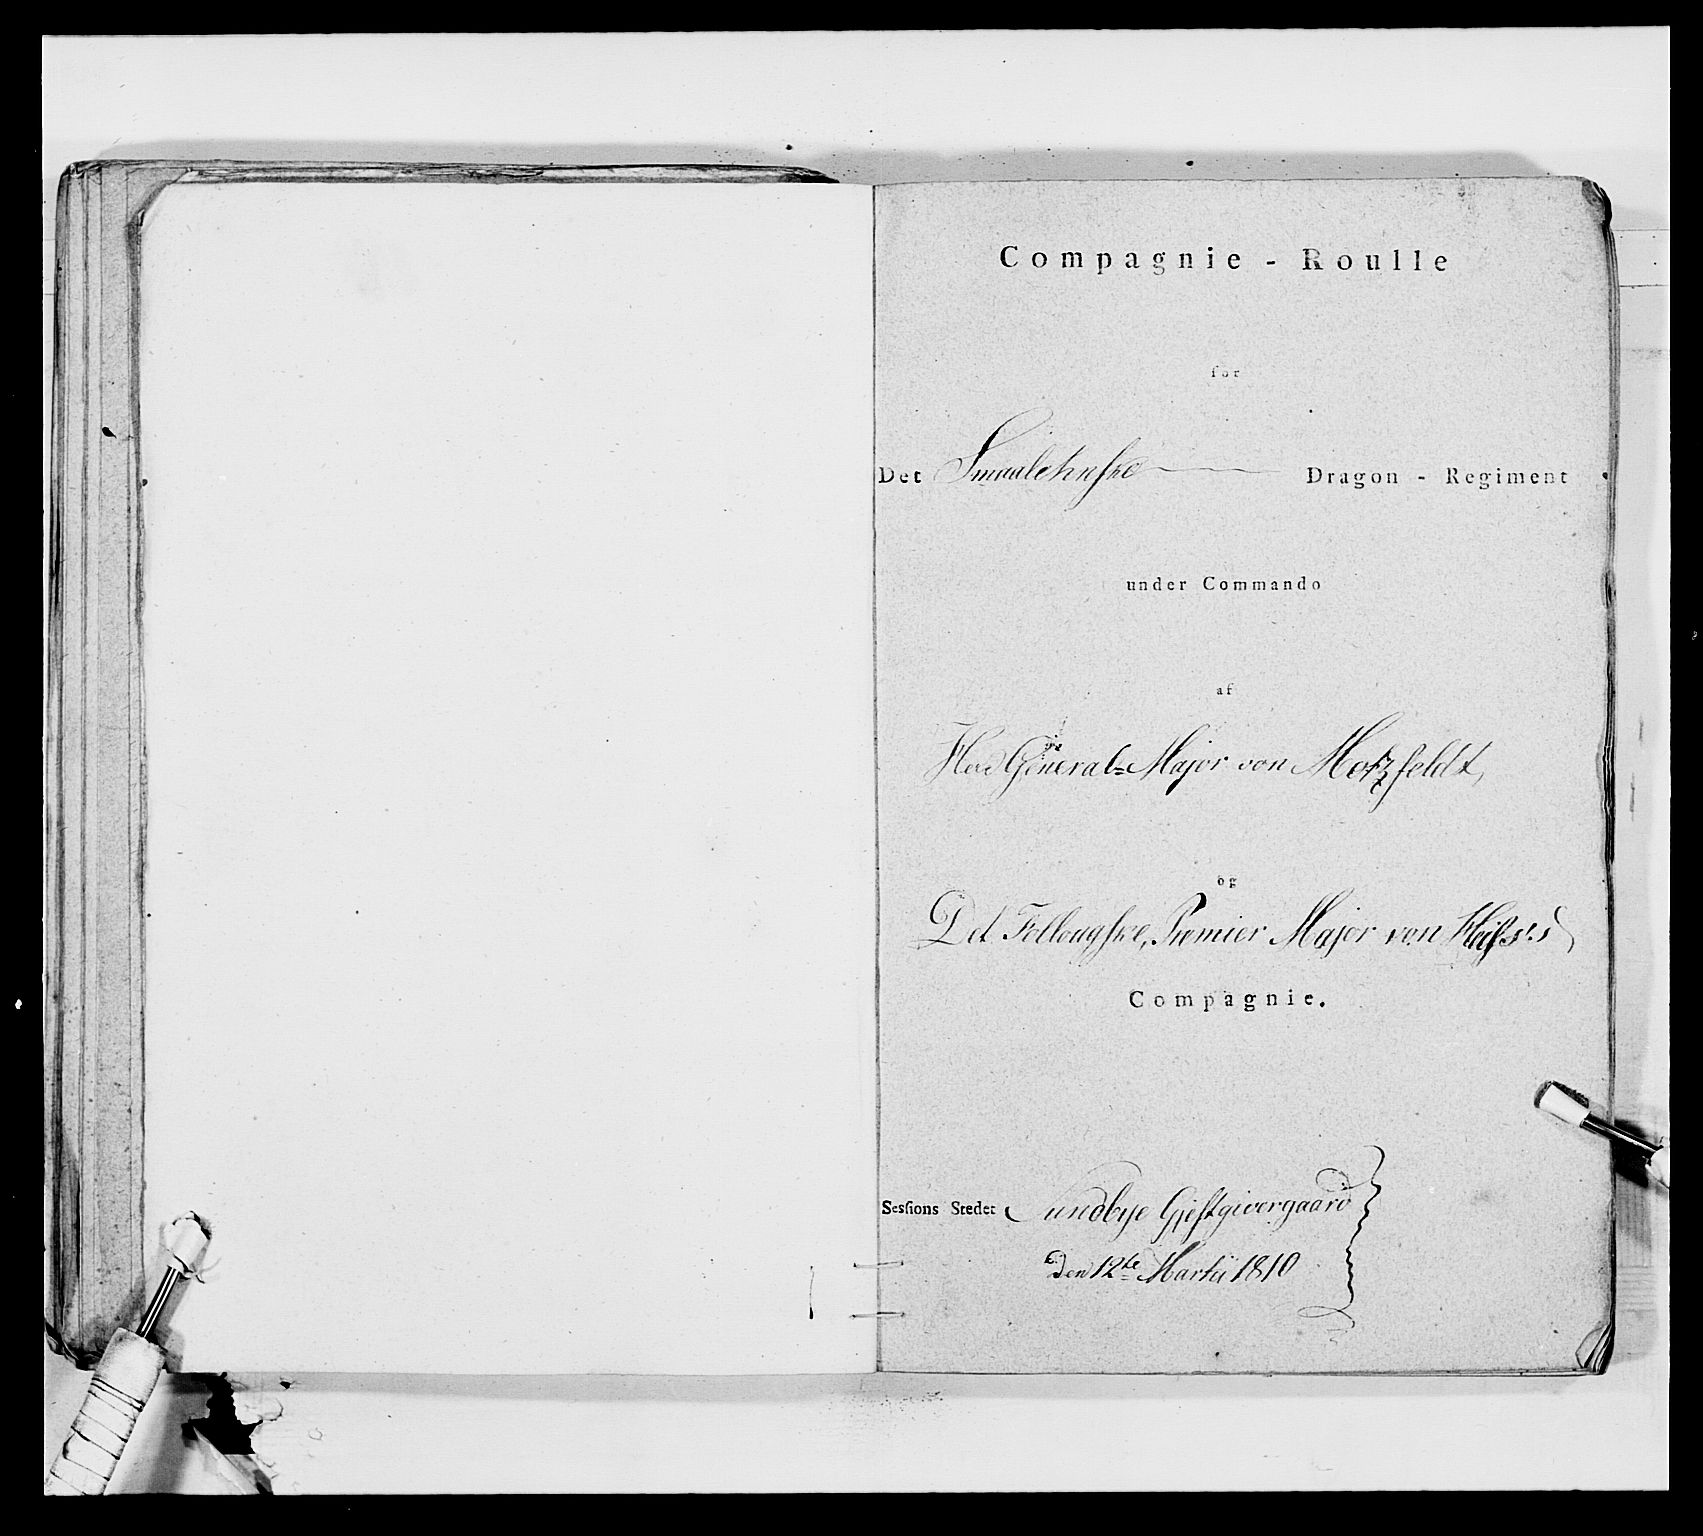 Compagnie - Roulle
for
Det Smaalehnske Dragon - Regiment
under Commando
af
Herr General=Major von Motzfeldt,
og
Det Follougske, Premier Major von
Compagnie.
Sessions Stedet Sundbye Gjestgivergaard
Den 12te Martii 1810